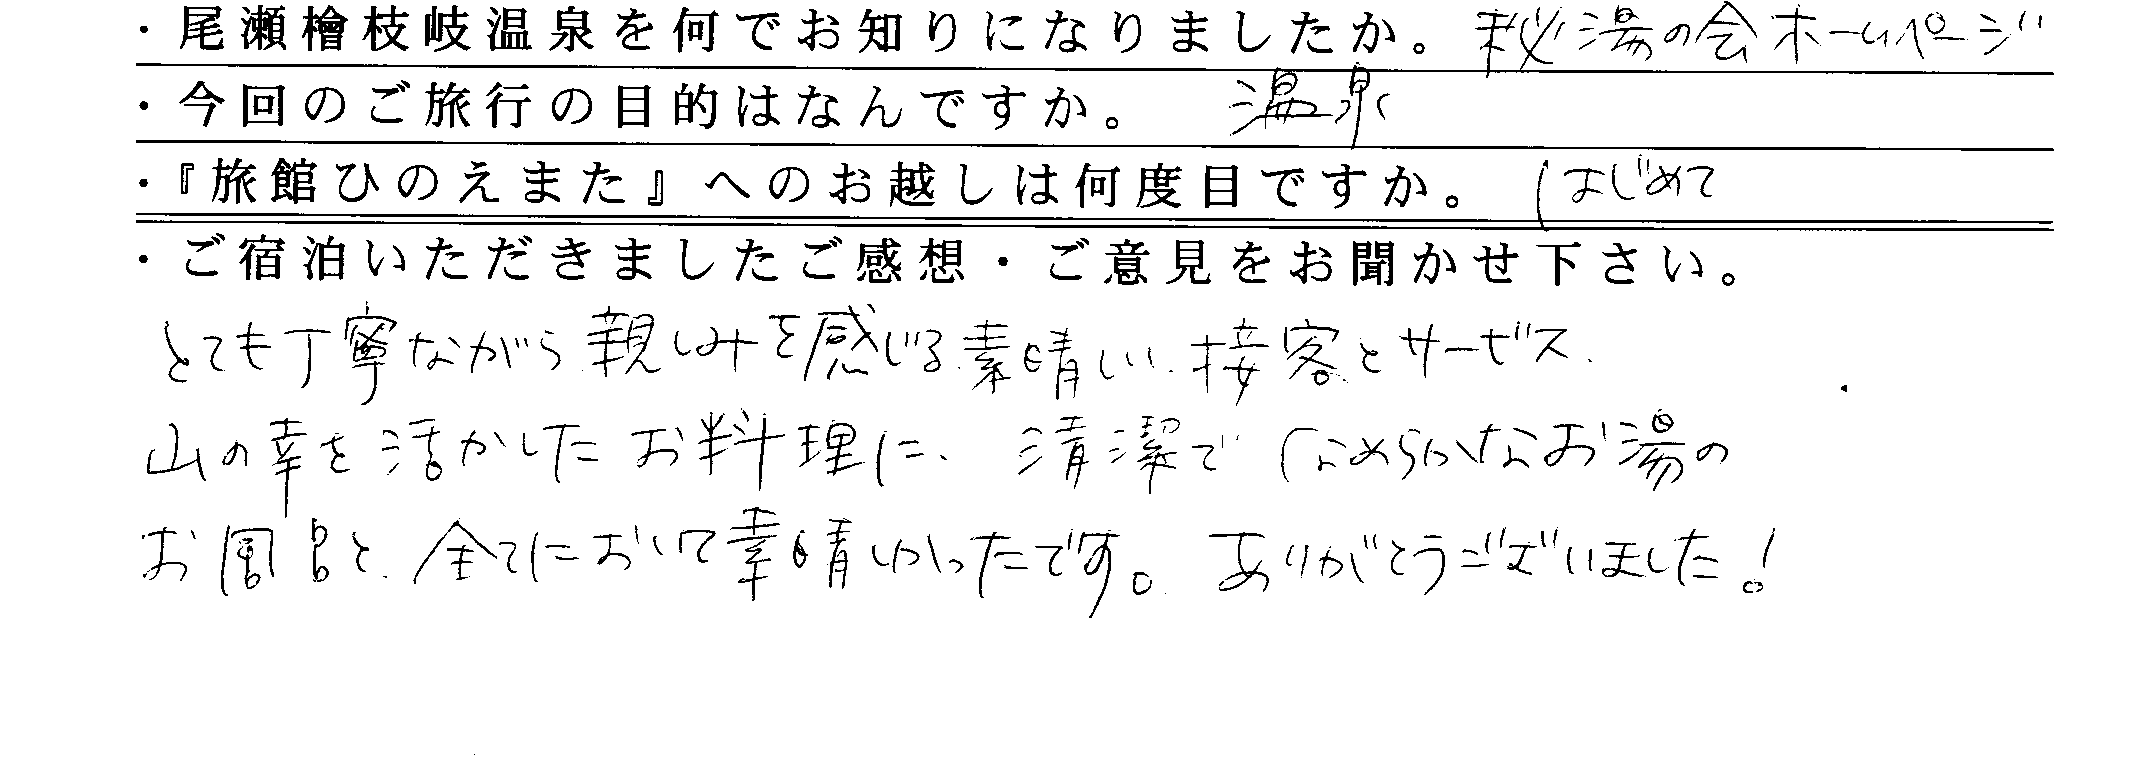 ・尾瀬檜枝岐温泉を何でお知りになりましたか。 秘湯の会ホームページ
・今回のご旅行の目的はなんですか。 温泉
・『旅館ひのえまた』へのお越しは何度目ですか。 はじめて
・ご宿泊いただきましたご感想・ご意見をお聞かせ下さい。
とても丁寧ながら親しみを感じる素晴しい接客とサービス、
山の幸を活かしたお料理に、清潔でなめらかなお湯の
お風呂と、全てにおいて素晴しかったです。ありがとうございました!